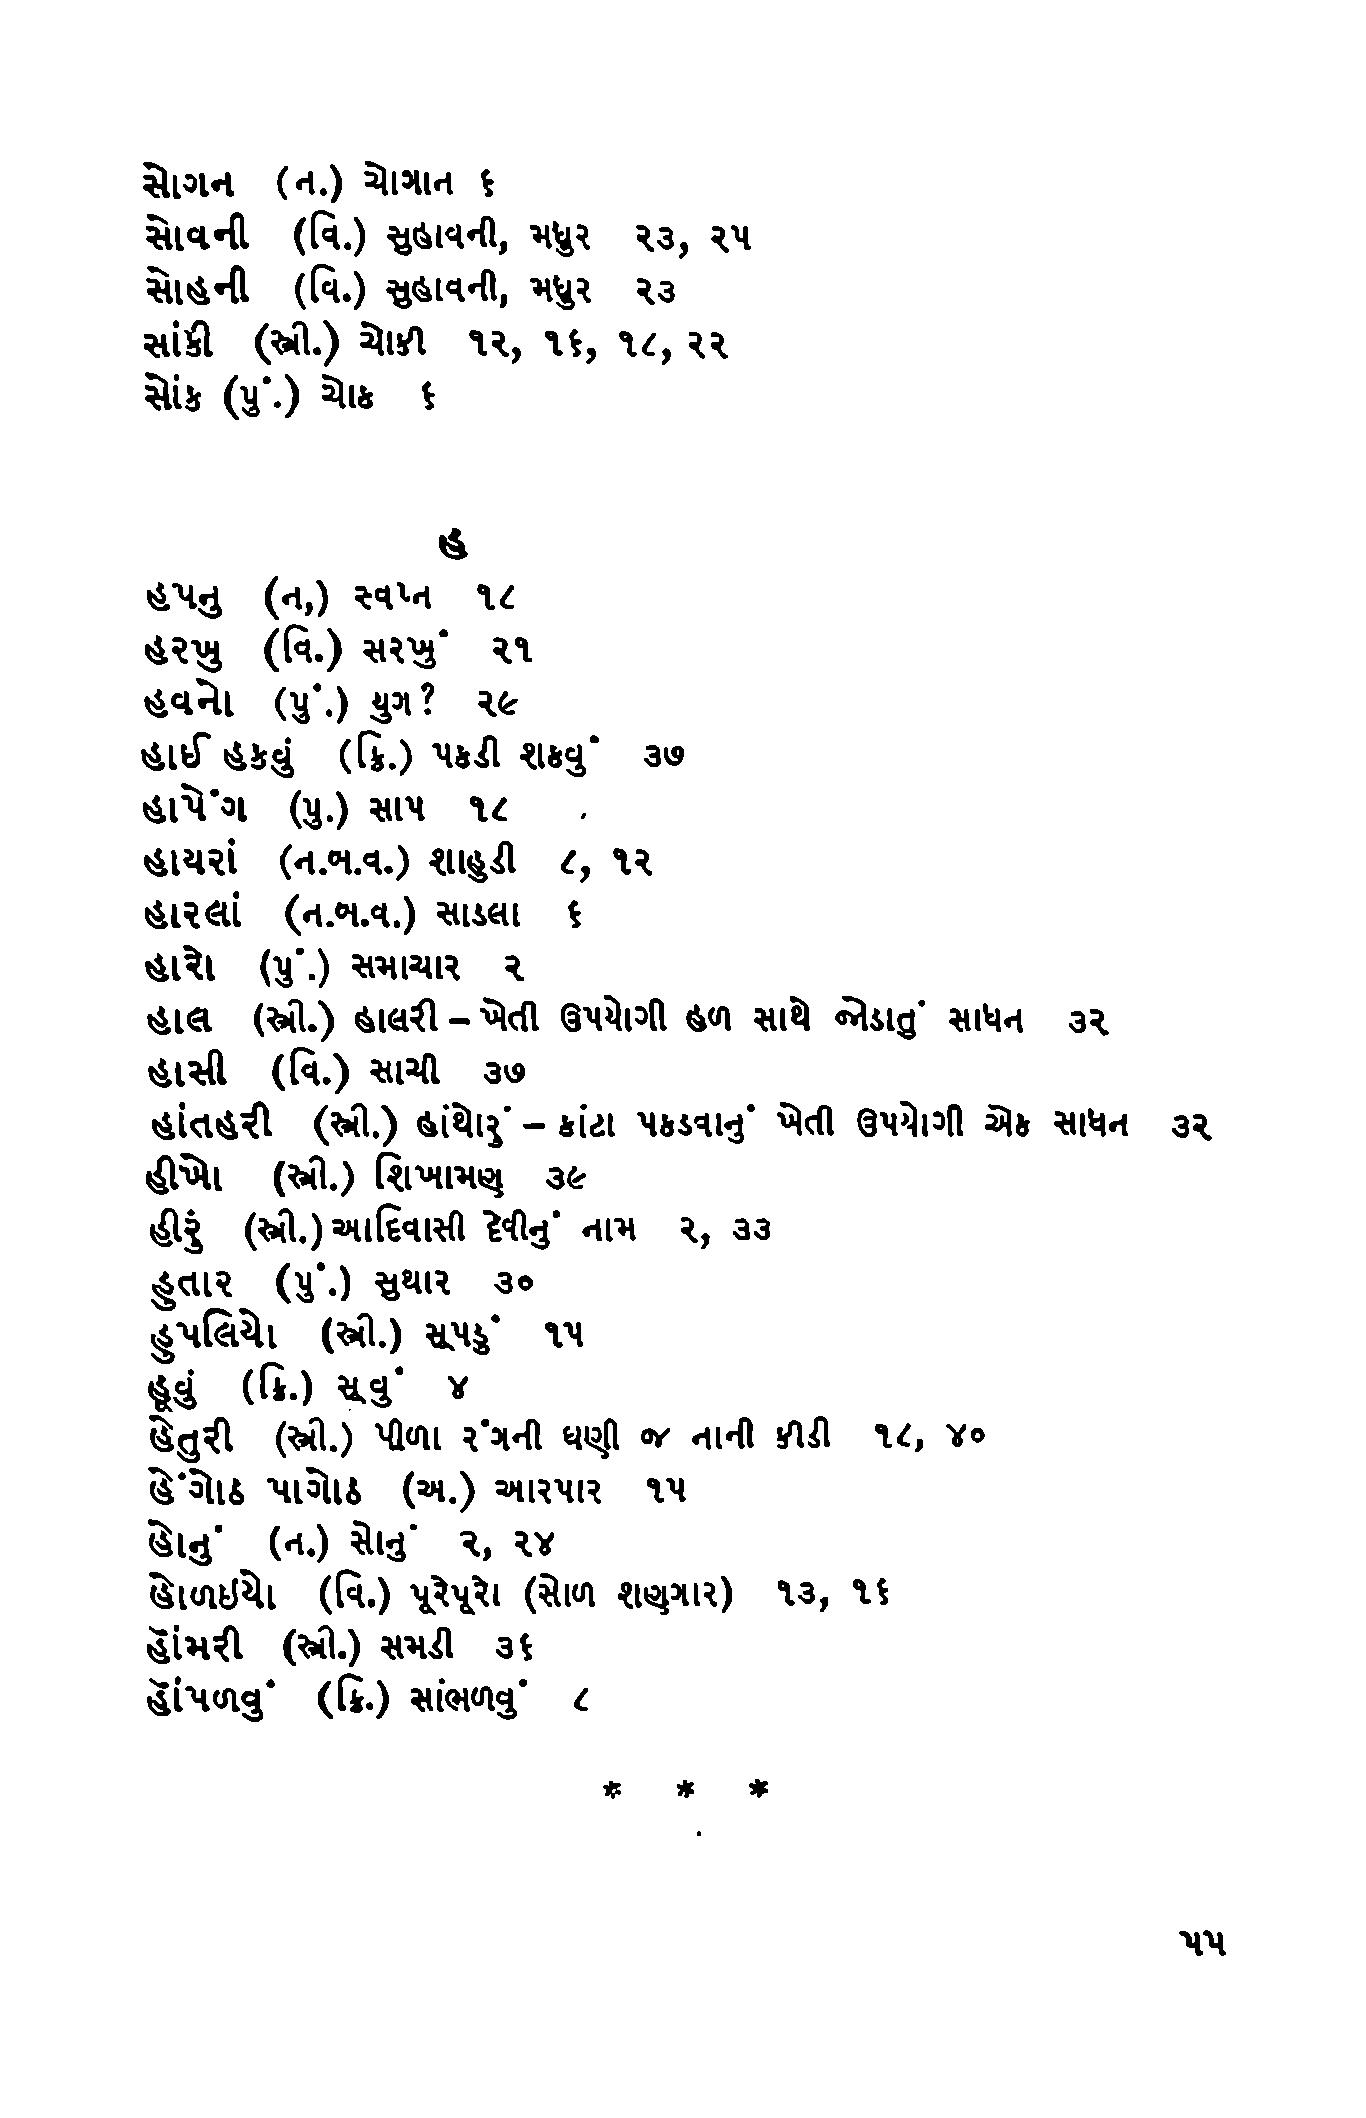 સોગન (ન.) ચોગાન ૬
સોવની (વિ.) સુહાવની, મધુર ૨૩, ૨૫
સોહની (વિ.) સુહાવની, મધુર ૨૩
સાંકી (સ્ત્રી.) ચોકી ૧૨, ૧૬, ૧૮, ૨૨
સોંક (પું.) ચોક ૬
હ
હપનુ (ન,) સ્વપ્ન ૧૮
હરખુ (વિ.) સરખું ૨૧
હવનો (પું.) યુગ? ૨૯
હાઈ હકવું (ક્રિ.) પકડી શકવું ૩૭
હાપેંગ (પુ.) સાપ ૧૮
હાયરાં (ન.બ.વ.) શાહુડી ૮, ૧૨
હારલાં (ન.બ.વ.) સાડલા ૬
હારો (પું.) સમાચાર ૨
હાલ (સ્ત્રી.) હાલરી – ખેતી ઉપયોગી હળ સાથે જોડાતું સાધન ૩૨
હાસી (વિ.) સાચી ૩૭
હાંતહરી (સ્ત્રી.) હાંથોરું – કાંટા પકડવાનું ખેતી ઉપયોગી એક સાધન ૩૨
હીખો (સ્ત્રી.) શિખામણ ૩૯
હીરું (સ્ત્રી.) આદિવાસી દેવીનું નામ ૨, ૩૩
હુતાર (પું.) સુથાર ૩૦
હુપલિયો (સ્ત્રી.) સૂપડું ૧૫
હૂવું (ક્રિ.) સૂવું ૪
હેતુરી (સ્ત્રી.) પીળા રંગની ઘણી જ નાની કીડી ૧૮, ૪૦
હેંગોઠ પાગોઠ (અ.) આરપાર ૧૫
હોનું (ન.) સોનું ૨, ૨૪
હોળઇયો (વિ.) પૂરેપૂરો (સોળ શણગાર) ૧૩, ૧૬
હૉંમરી (સ્ત્રી.) સમડી ૩૬
હૉંપળવું (ક્રિ.) સાંભળવું ૮
* * *
૫૫